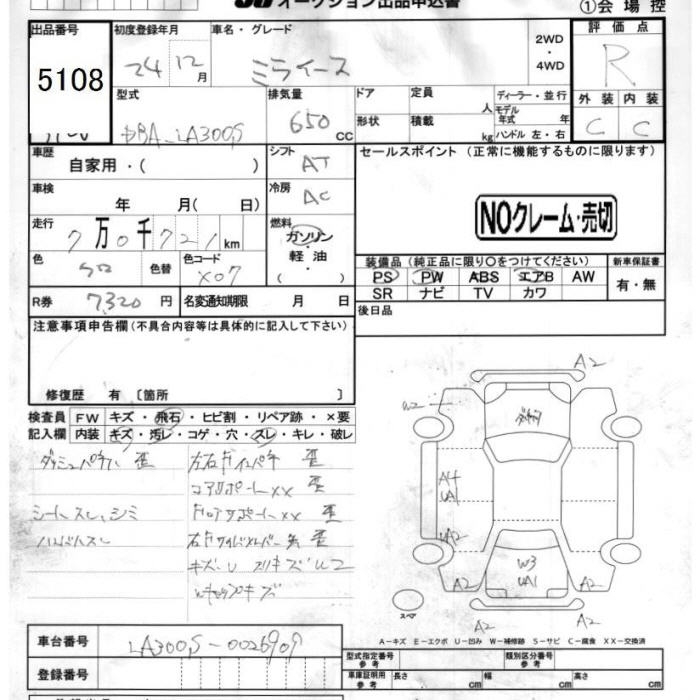 オークション出品申込書
①会場控
出品番号 初度登録年月 車名・グレード 評価点
5108 24年12月 ミライース 2WD・4WD R
型式 排気量 ドア 定員 人 ディーラー・並行 外装 内装
DBA-LA300S 650CC 形状 積載 kg モデル年式 年式 ハンドル 左・右 C C
車歴 自家用・( ) シフト AT セールスポイント (正常に機能するものに限ります)
車検 年 月( 日) 冷房 AC
NOクレーム・売切
走行 7万0千721km 燃料 ガソリン・軽油( )
色 シロ 色替 色コード X07
装備品(純正品に限り○をつけてください) 新車保証書
PS PW ABS エアB AW 有・無
SR ナビ TV カワ
R券 7320円 名変通知期限 月 日
後日品
注意事項申告欄(不具合内容等は具体的に記入して下さい)
修復歴 有〔箇所 〕
検査員記入欄 FW キズ・飛石・ヒビ割・リペア跡・×要
内装 キズ・汚レ・コゲ・穴・スレ・キレ・破レ
ダッシュパネル 歪 左右Fインパネ 歪
コアサポートXX 歪
シートスレ、シミ
A2
W2
A4
UA1
UA2
W3
UA1
A2
A2
A2
A2
スペア
A-キズ E-エクボ U-凹み W-補修跡 S-サビ C-腐食 XX-交換済
車台番号 LA300S-0026909
登録番号
型式指定番号 参考 類別区分番号 参考
車庫証明用 参考 長さ cm 幅 cm 高さ cm